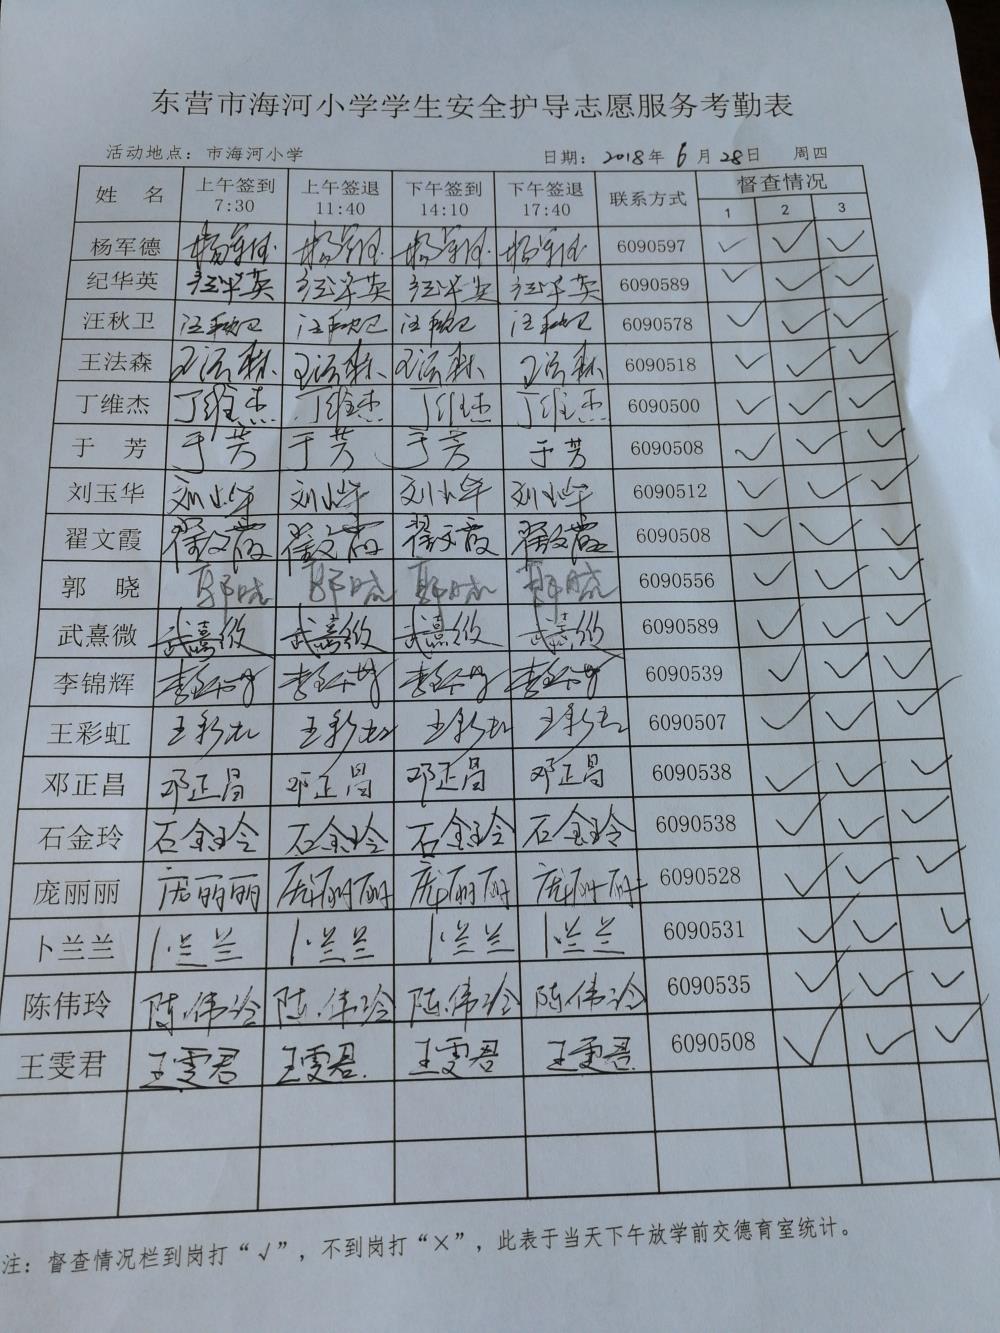 东营市海河小学学生安全护导志愿服务考勤表
活动地点：市海河小学 日期：2018年 6 月 28日 周四
姓 名 上午签到 7:30 上午签退 11:40 下午签到 14:10 下午签退 17:40 联系方式 督查情况 1 2 3
杨军德 杨军德 杨军德 杨军德 杨军德 6090597 ✓ ✓ ✓
纪华英 纪华英 纪华英 纪华英 纪华英 6090589 ✓ ✓ ✓
汪秋卫 汪秋卫 汪秋卫 汪秋卫 汪秋卫 6090578 ✓ ✓ ✓
王法森 王法森 王法森 王法森 王法森 6090518 ✓ ✓ ✓
丁维杰 丁维杰 丁维杰 丁维杰 丁维杰 6090500 ✓ ✓ ✓
于 芳 于芳 于芳 于芳 于芳 6090508 ✓ ✓ ✓
刘玉华 刘玉华 刘玉华 刘玉华 刘玉华 6090512 ✓ ✓ ✓
翟文霞 翟文霞 翟文霞 翟文霞 翟文霞 6090508 ✓ ✓ ✓
郭 晓 郭晓 郭晓 郭晓 郭晓 6090556 ✓ ✓ ✓
武熹微 武熹微 武熹微 武熹微 武熹微 6090589 ✓ ✓ ✓
李锦辉 李锦辉 李锦辉 李锦辉 李锦辉 6090539 ✓ ✓ ✓
王彩虹 王彩虹 王彩虹 王彩虹 王彩虹 6090507 ✓ ✓ ✓
邓正昌 邓正昌 邓正昌 邓正昌 邓正昌 6090538 ✓ ✓ ✓
石金玲 石金玲 石金玲 石金玲 石金玲 6090538 ✓ ✓ ✓
庞丽丽 庞丽丽 庞丽丽 庞丽丽 庞丽丽 6090528 ✓ ✓ ✓
卜兰兰 卜兰兰 卜兰兰 卜兰兰 卜兰兰 6090531 ✓ ✓ ✓
陈伟玲 陈伟玲 陈伟玲 陈伟玲 陈伟玲 6090535 ✓ ✓ ✓
王雯君 王雯君 王雯君 王雯君 王雯君 6090508 ✓ ✓ ✓
注：督查情况栏到岗打“√”，不到岗打“×”，此表于当天下午放学前交德育室统计。